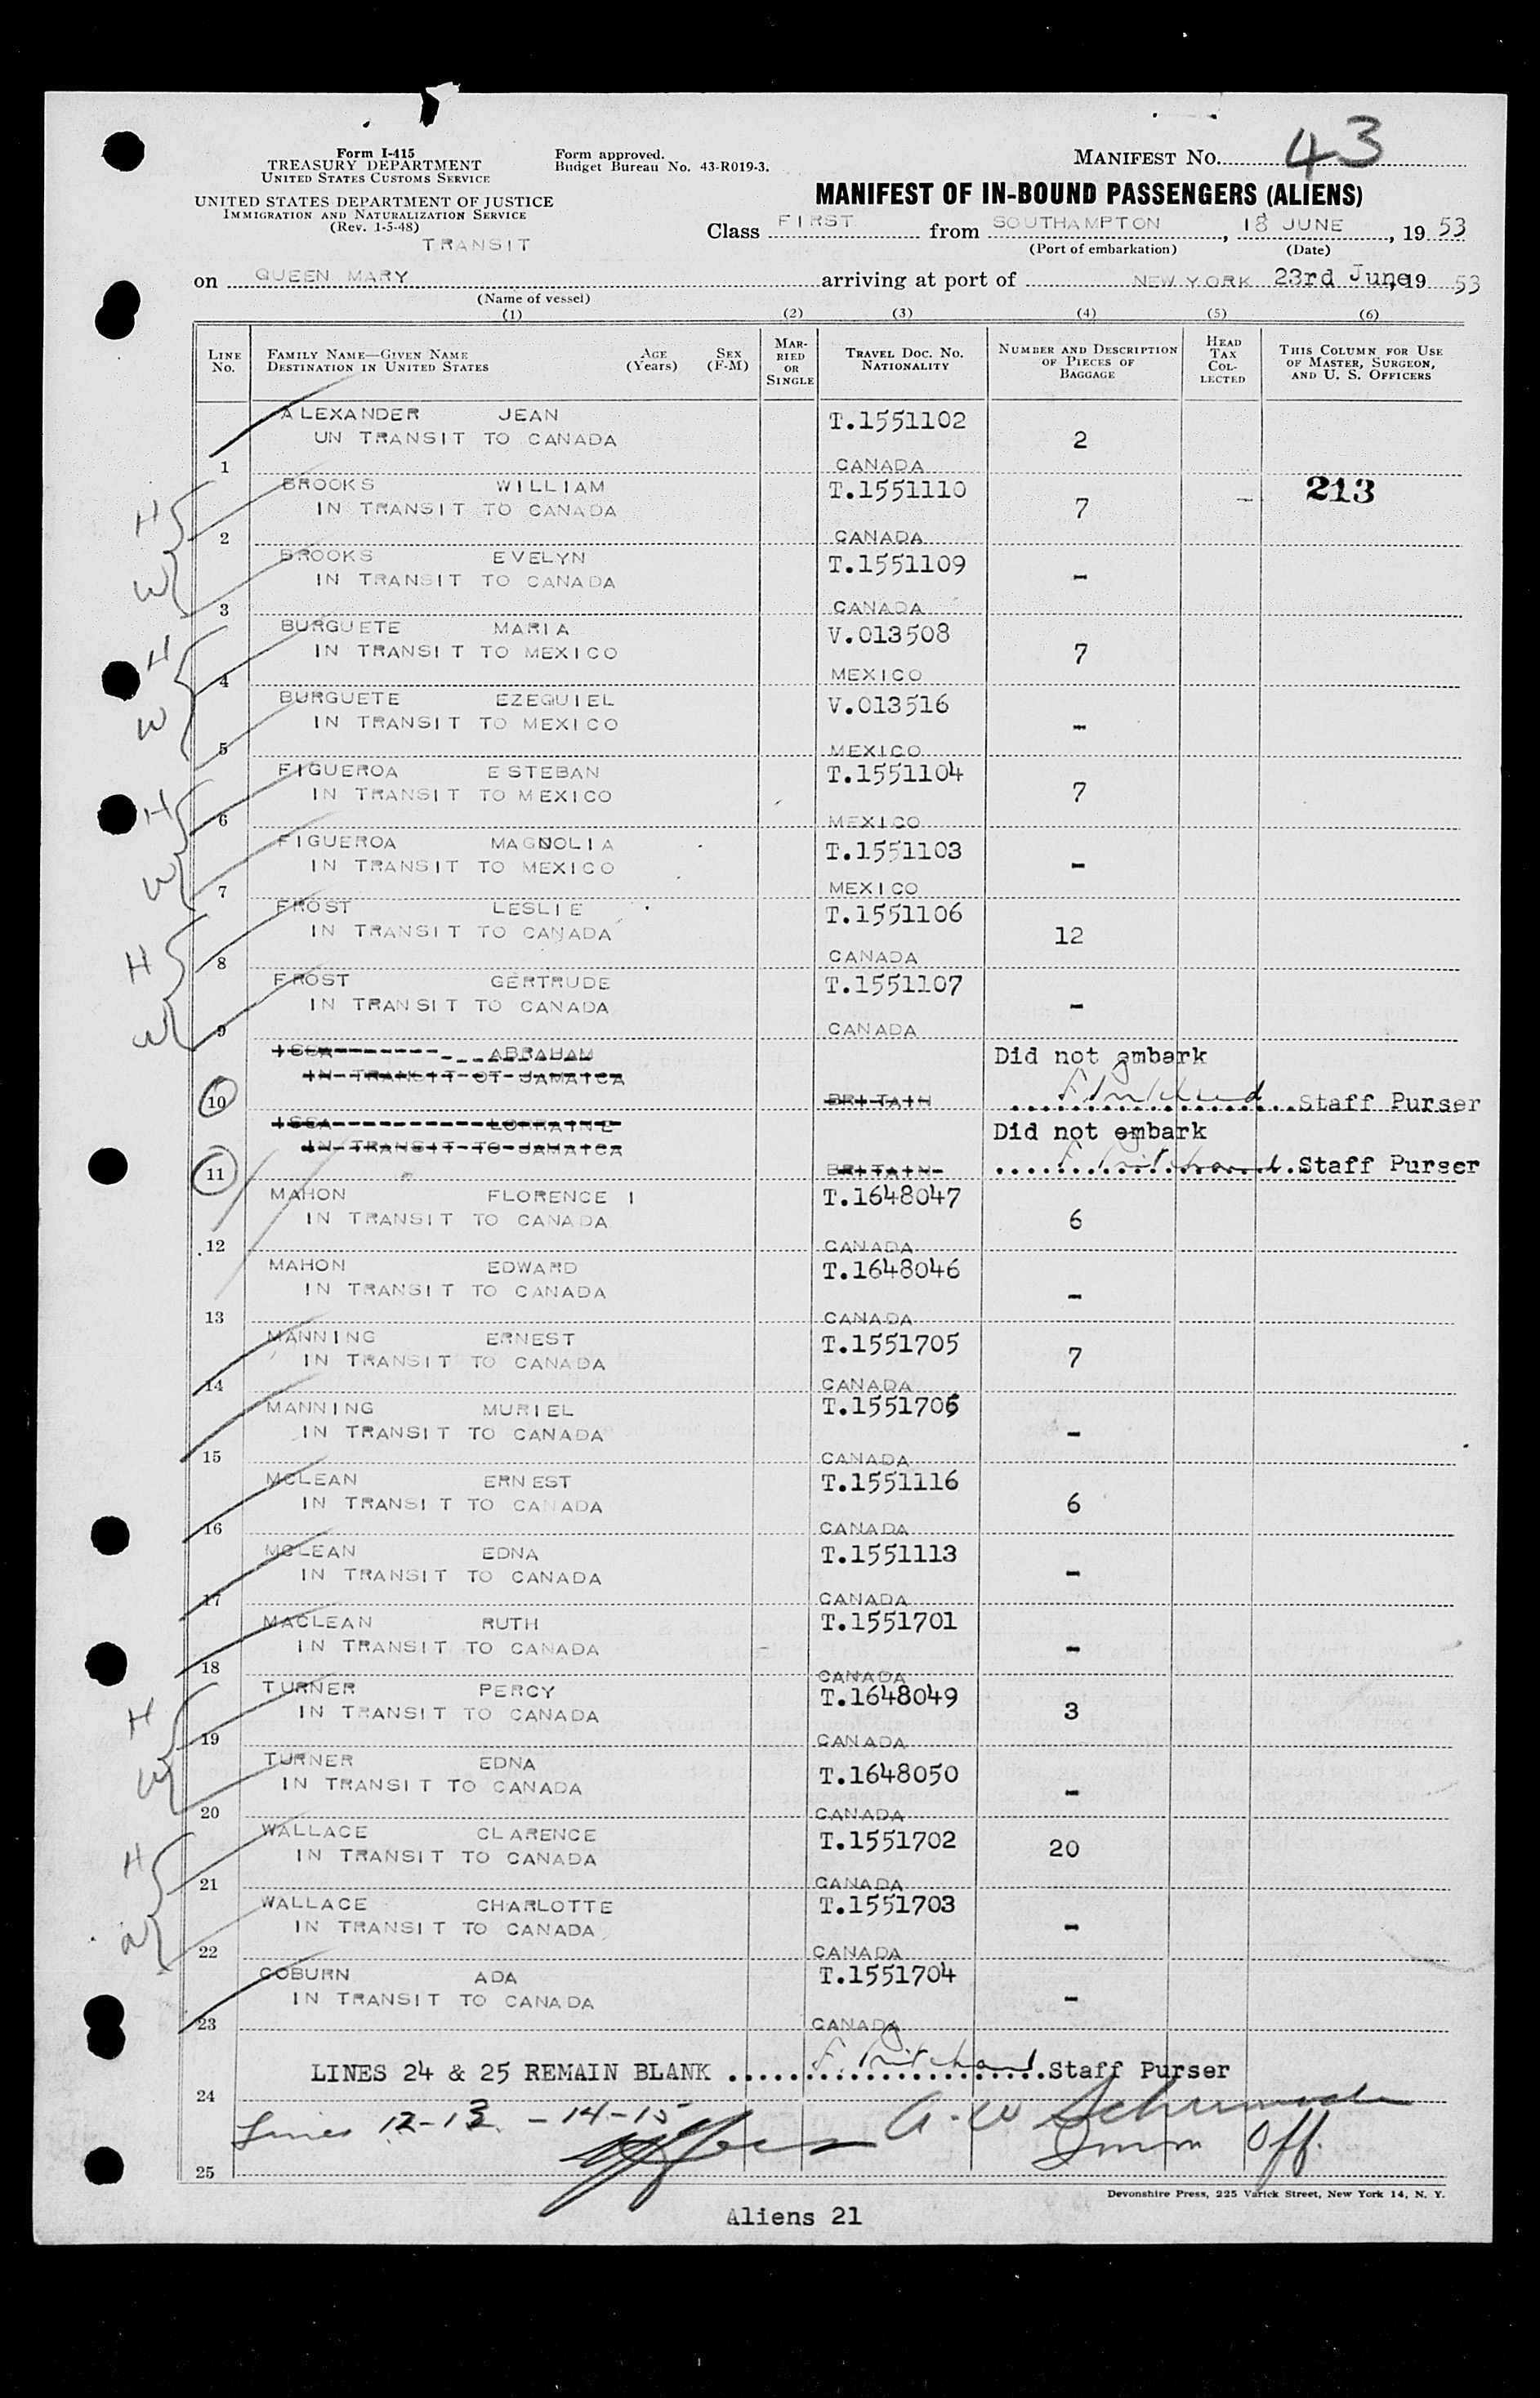 Form I-415
TREASURY DEPARTMENT
UNITED STATES CUSTOMS SERVICE
UNITED STATES DEPARTMENT OF JUSTICE
IMMIGRATION AND NATURALIZATION SERVICE
(Rev. 1-5-48)
TRANSIT
Form approved.
Budget Bureau No. 43-R019-3.
MANIFEST NO. 43
MANIFEST OF IN-BOUND PASSENGERS (ALIENS)
Class FIRST from SOUTHAMPTON, 18 JUNE, 1953
(Port of embarkation) (Date)
on QUEEN MARY arriving at port of NEW YORK 23rd June, 1953
(Name of vessel)
(1) (2) (3) (4) (5) (6)
LINE NO. FAMILY NAME—GIVEN NAME DESTINATION IN UNITED STATES AGE (Years) SEX (F-M) MARRIED OR SINGLE TRAVEL DOC. NO. NATIONALITY NUMBER AND DESCRIPTION OF PIECES OF BAGGAGE HEAD TAX COLLECTED THIS COLUMN FOR USE OF MASTER, SURGEON, AND U. S. OFFICERS
ALEXANDER JEAN T.1551102
UN TRANSIT TO CANADA 2
1 CANADA
BROOKS WILLIAM T.1551110 213
H IN TRANSIT TO CANADA 7 -
2 CANADA
BROOKS EVELYN T.1551109
W IN TRANSIT TO CANADA -
3 CANADA
BURGUETE MARIA V.013508
H IN TRANSIT TO MEXICO 7
4 MEXICO
BURGUETE EZEQUIEL V.013516
W IN TRANSIT TO MEXICO -
5 MEXICO
FIGUEROA ESTEBAN T.1551104
H IN TRANSIT TO MEXICO 7
6 MEXICO
FIGUEROA MAGNOLIA T.1551103
W IN TRANSIT TO MEXICO -
7 MEXICO
FROST LESLIE T.1551106
H IN TRANSIT TO CANADA 12
8 CANADA
FROST GERTRUDE T.1551107
W IN TRANSIT TO CANADA -
9 CANADA
ISSA ABRAHAM Did not embark
IN TRANSIT OT JAMAICA
10 BRITAIN F. Pritchard Staff Purser
ISSA LORRAINE Did not embark
IN TRANSIT TO JAMAICA
11 BRITAIN F. Pritchard Staff Purser
MAHON FLORENCE I T.1648047
IN TRANSIT TO CANADA 6
12 CANADA
MAHON EDWARD T.1648046
IN TRANSIT TO CANADA -
13 CANADA
MANNING ERNEST T.1551705
IN TRANSIT TO CANADA 7
14 CANADA
MANNING MURIEL T.1551706
IN TRANSIT TO CANADA -
15 CANADA
MCLEAN ERNEST T.1551116
IN TRANSIT TO CANADA 6
16 CANADA
MCLEAN EDNA T.1551113
IN TRANSIT TO CANADA -
17 CANADA
MACLEAN RUTH T.1551701
IN TRANSIT TO CANADA -
18 CANADA
TURNER PERCY T.1648049
H IN TRANSIT TO CANADA 3
19 CANADA
TURNER EDNA T.1648050
W IN TRANSIT TO CANADA -
20 CANADA
WALLACE CLARENCE T.1551702
H IN TRANSIT TO CANADA 20
21 CANADA
WALLACE CHARLOTTE T.1551703
W IN TRANSIT TO CANADA -
22 CANADA
COBURN ADA T.1551704
IN TRANSIT TO CANADA -
23 CANADA
LINES 24 & 25 REMAIN BLANK F. Pritchard Staff Purser
24
Lines 12-13 - 14-15 A. W
Imm Off.
25
Devonshire Press, 225 Varick Street, New York 14, N. Y.
Aliens 21